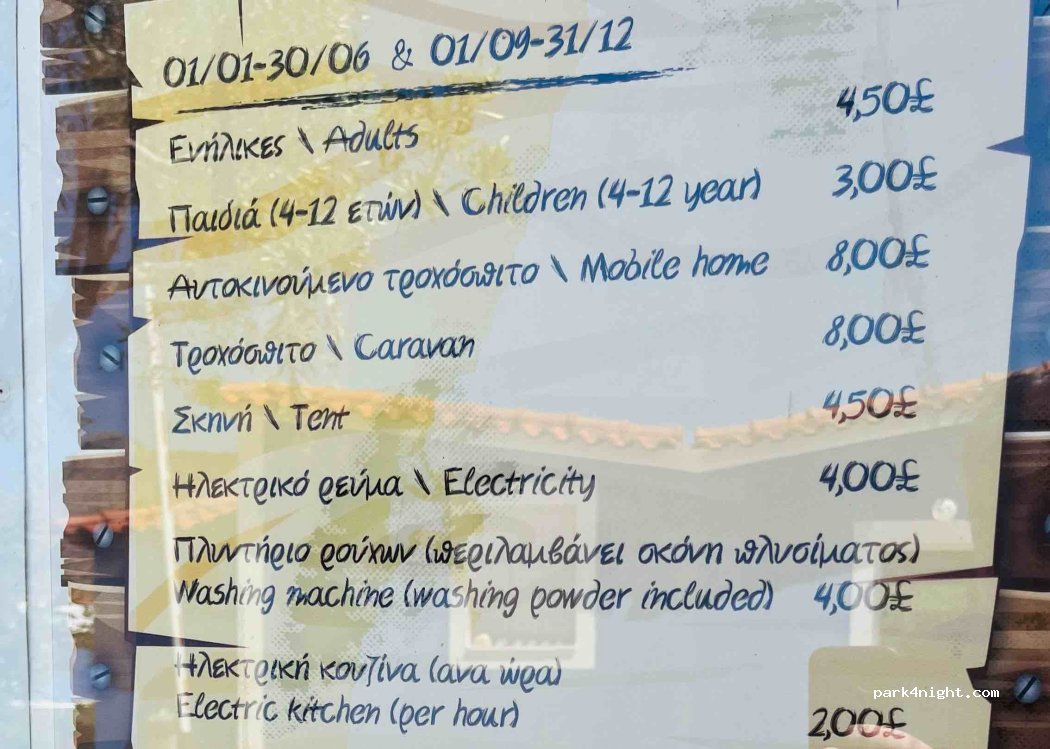 01/01-30/06 & 01/09-31/12
Ενήλικες \ Adults 4,50£
Παιδιά (4-12 ετών) \ Children (4-12 year) 3,00£
Αυτοκινούμενο τροχόσπιτο \ Mobile home 8,00£
Τροχόσπιτο \ Caravan 8,00£
Σκηνή \ Tent 4,50£
Ηλεκτρικό ρεύμα \ Electricity 4,00£
Πλυντήριο ρούχων (περιλαμβάνει σκόνη πλυσίματος)
Washing machine (washing powder included) 4,00£
Ηλεκτρική κουζίνα (ανα ώρα)
Electric kitchen (per hour) 2,00£
park4night.com